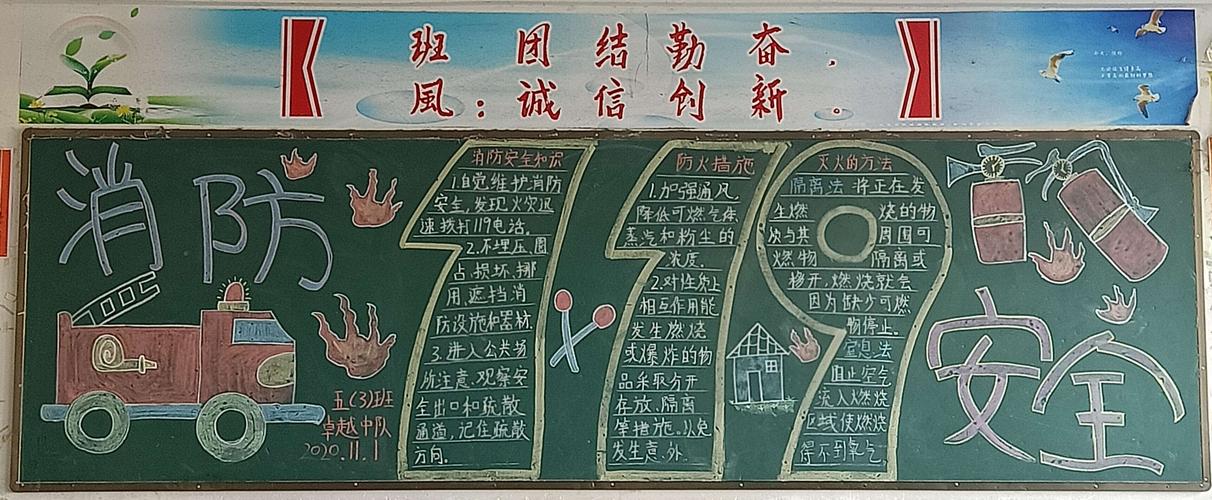 班 团结勤奋，
風：诚信创新。
消防
五(3)班
卓越中队
2020.11.1
消防安全知识
1.自觉维护消防
安全,发现火灾迅
速拨打119电话。
2.不埋压、圈
占、损坏、挪
用、遮挡消
防设施和器材.
3.进入公共场
所注意、观察安
全出口和疏散
通道,记住疏散
方向.
防火措施
1.加强通风,
降低可燃气体,
蒸汽和粉尘的
浓度.
2.对性质上
相互作用能
发生燃烧
或爆炸的物
品采取分开
存放、隔离
等措施.以免
发生意.外.
灭火的方法
隔离法 将正在发
生燃 烧的物
质与其 周围可
燃物 隔离或
移开,燃烧就会
因为缺少可燃
物停止.
窒息法
阻止空气
流入燃烧
区域使燃烧
得不到氧气.
安全